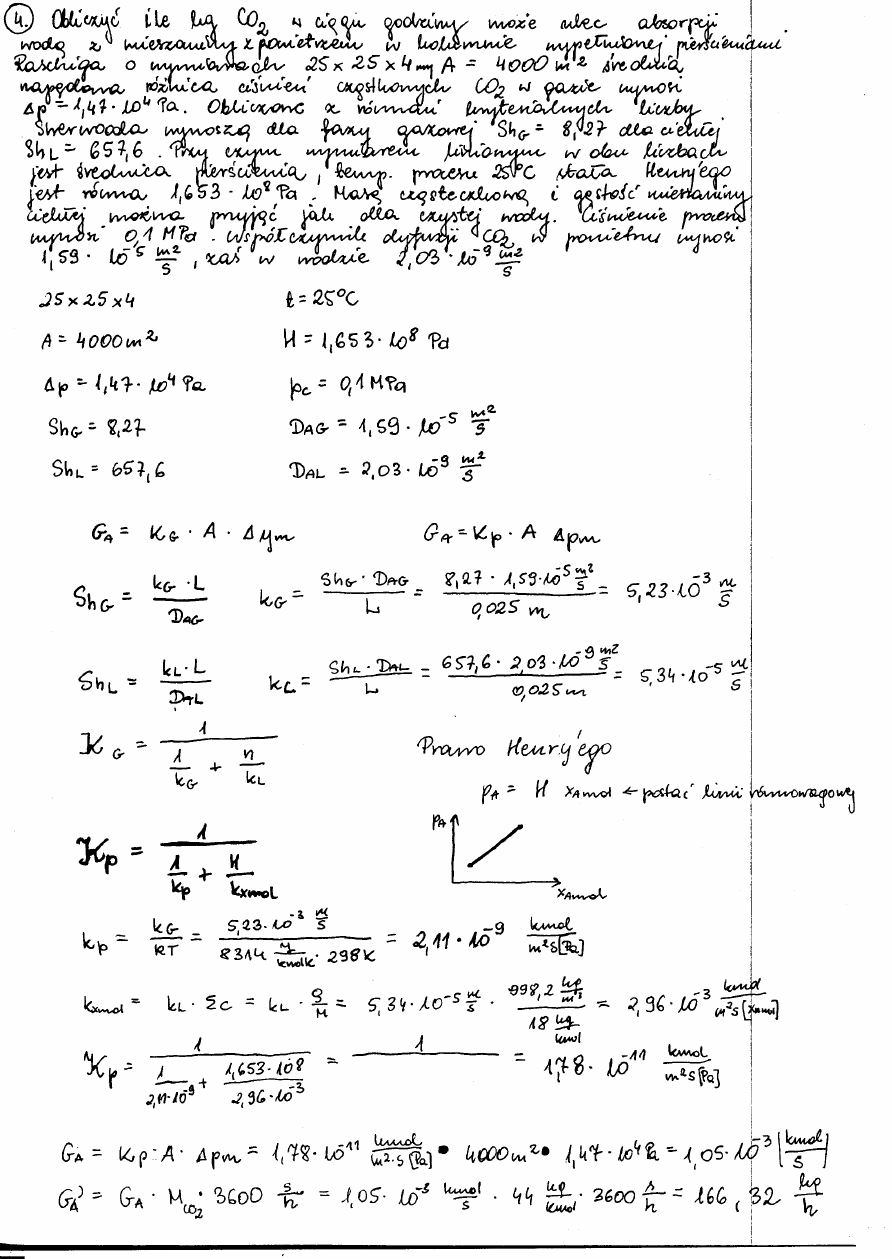 4. Obliczyć ile kg CO2 w ciągu godziny może ulec absorpcji
wodą z mieszaniny z powietrzem w kolumnie wypełnionej pierścieniami
Raschiga o wymiarach 25x25x4 mm A = 4000 m² średnia
napędowa różnica ciśnień cząstkowych CO2 w gazie wynosi
Δp = 1,47·10⁴ Pa. Obliczone z równań kryterialnych liczby
Sherwooda wynoszą dla fazy gazowej ShG = 8,27 dla ciekłej
ShL = 657,6. Przy czym wymiarem liniowym w obu liczbach
jest średnica pierścienia, temp. procesu 25°C stała Henry'ego
jest równa 1,653·10⁸ Pa. Masę cząsteczkową i gęstość mieszaniny
ciekłej można przyjąć jak dla czystej wody. Ciśnienie procesu
wynosi 0,1 MPa. Współczynnik dyfuzji CO2 w powietrzu wynosi
1,59·10⁻⁵ m²/s, zaś w wodzie 2,03·10⁻⁹ m²/s
25x25x4 t = 25°C
A = 4000 m² H = 1,653·10⁸ Pa
Δp = 1,47·10⁴ Pa pc = 0,1 MPa
ShG = 8,27 DAG = 1,59·10⁻⁵ m²/s
ShL = 657,6 DAL = 2,03·10⁻⁹ m²/s
GA = KG · A · Δym GA = Kp · A Δpm
ShG = kG · L / DAG kG = ShG · DAG / L = 8,27 · 1,59·10⁻⁵ m²/s / 0,025 m = 5,23·10⁻³ m/s
ShL = kL · L / DAL kL = ShL · DAL / L = 657,6 · 2,03·10⁻⁹ m²/s / 0,025 m = 5,34·10⁻⁵ m/s
KG = 1 / (1/kG + n/kL) Prawo Henry'ego
pA = H xAmol ← postać linii równowagowej
pA
Kp = 1 / (1/kp + H/kxmol)
xAmol
kp = kG/RT = 5,23·10⁻³ m/s / 8314 J/kmolK · 298K = 2,11·10⁻⁹ kmol/m²s[Pa]
kxmol = kL · Σc = kL · ρ/M = 5,34·10⁻⁵ m/s · 998,2 kg/m³ / 18 kg/kmol = 2,96·10⁻³ kmol/m²s[xAmol]
Kp = 1 / (1/2,11·10⁻⁹ + 1,653·10⁸/2,96·10⁻³) = 1 / = 1,78·10⁻¹¹ kmol/m²s[Pa]
GA = Kp · A · Δpm = 1,78·10⁻¹¹ kmol/m²·s[Pa] • 4000 m² • 1,47·10⁴ Pa = 1,05·10⁻³ [kmol/s]
GA' = GA · MCO2 · 3600 s/h = 1,05·10⁻³ kmol/s · 44 kg/kmol · 3600 s/h = 166,32 kg/h